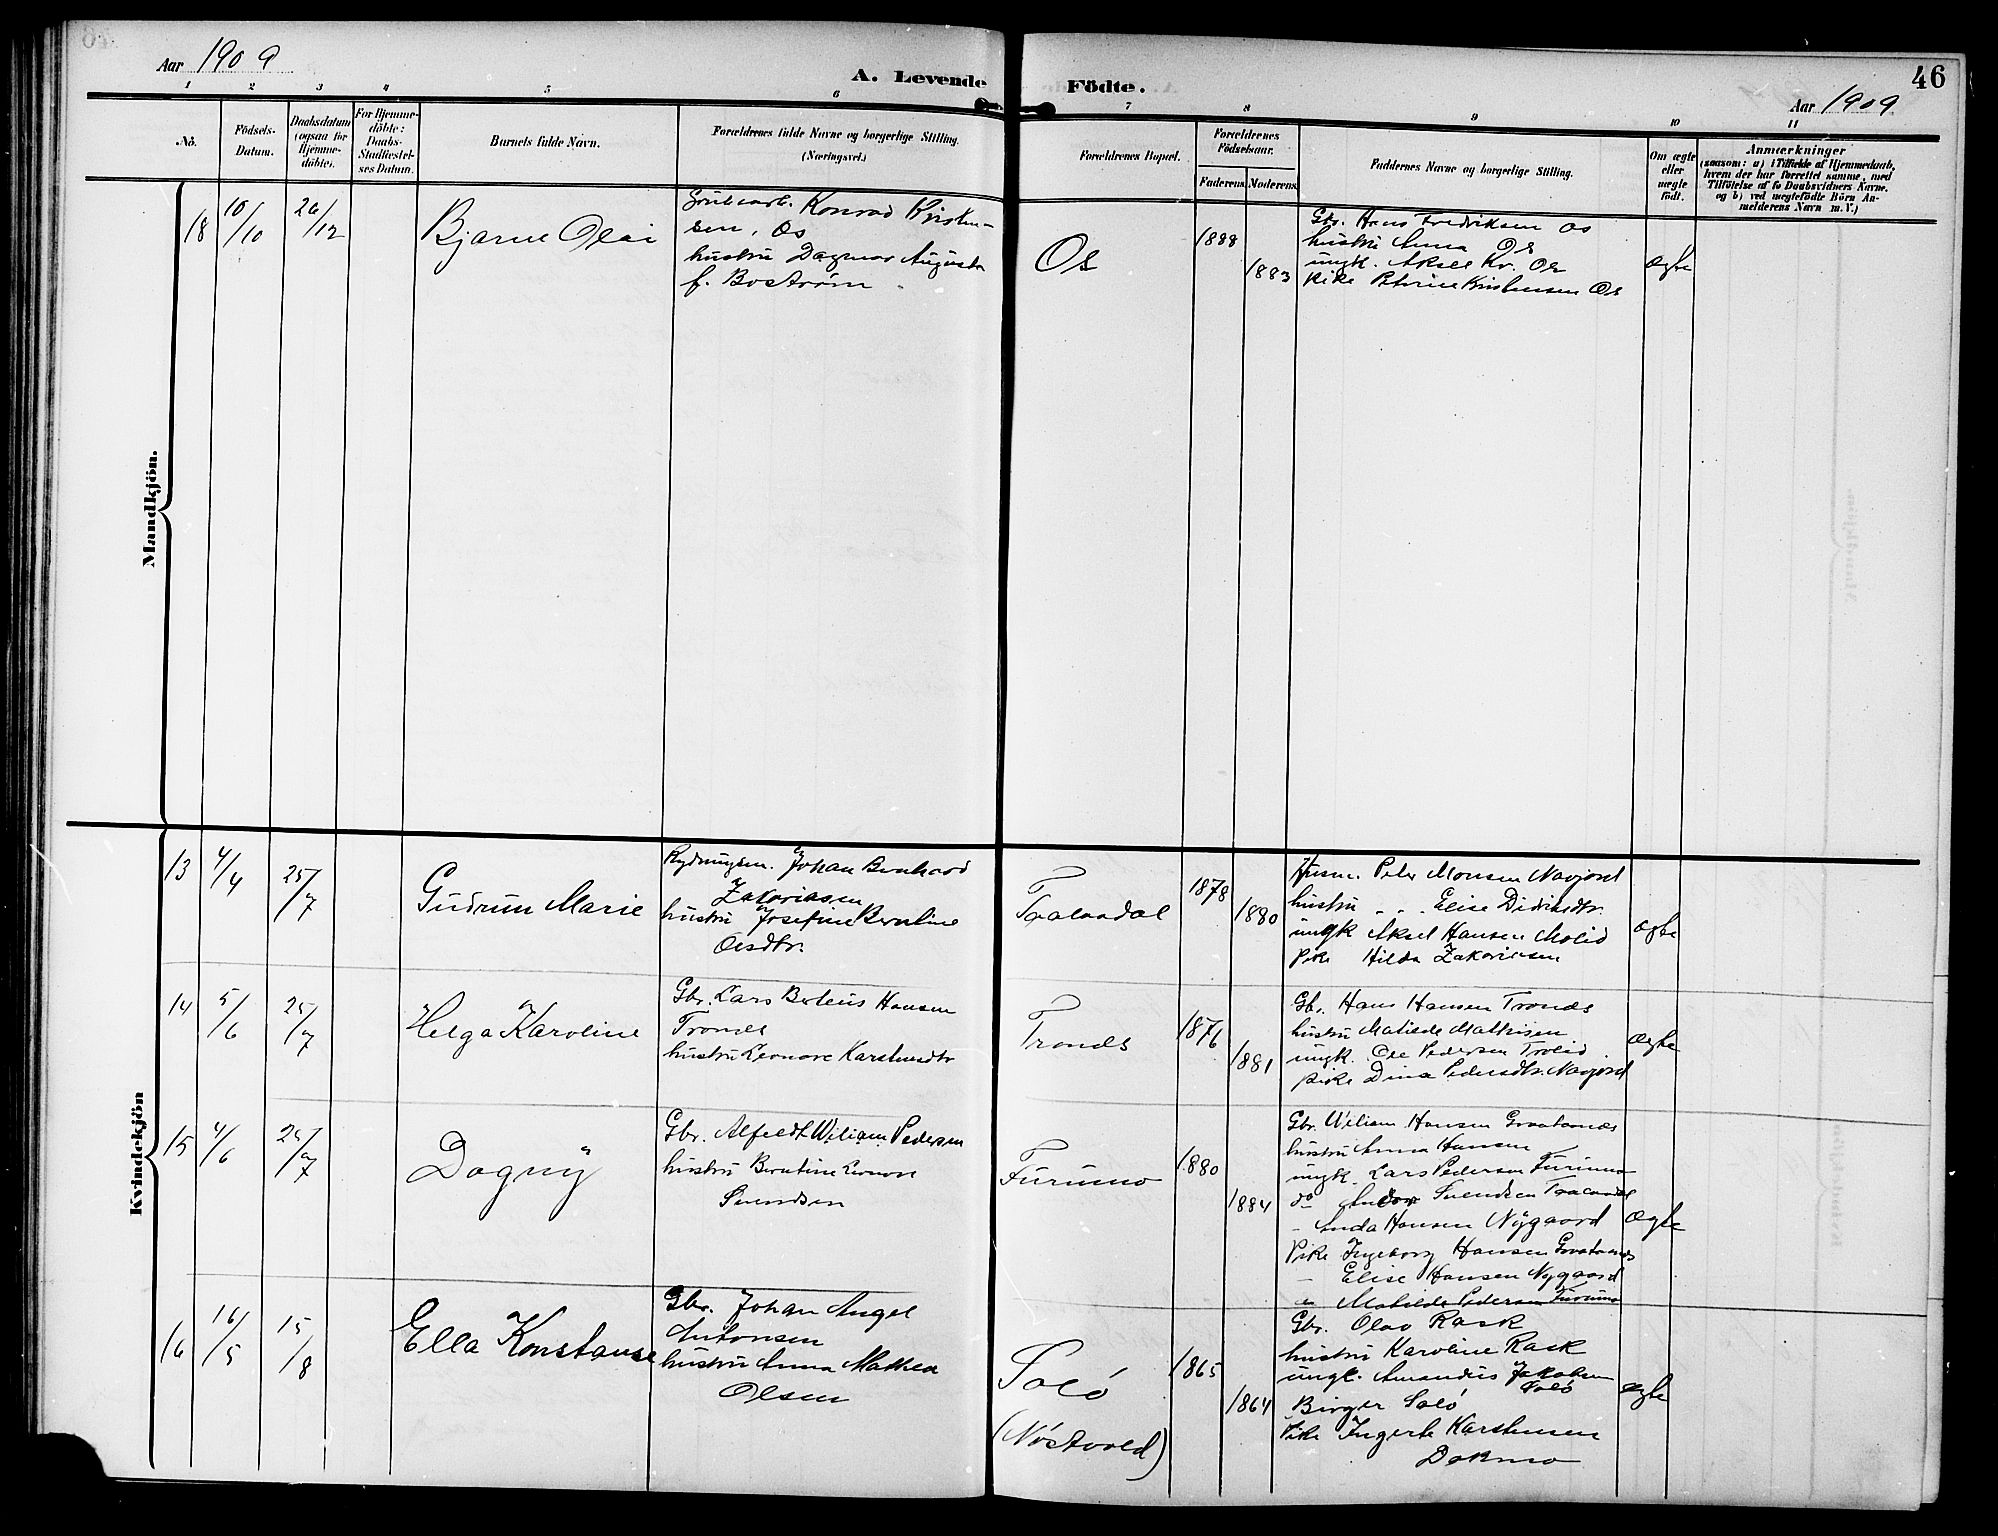 46
Aar 1909
A. Levende Födte.
Aar 1909
1 2 3 4 5 6 7 8 9 10 11
No.
Födsels-
Datum.
Daabsdatum
(ogsaa for
Hjemme-
döbte).
For Hjemme-
döbte:
Daabs-
Stadfæstel-
ses Datum.
Barnets fulde Navn.
Forældrenes fulde Navne og borgerlige Stilling.
(Næringsvei.)
Forældrenes Bopæl.
Forældrenes
Födselsaar.
Faderens. Moderens.
Faddernes Navne og borgerlige Stilling.
Om ægte
eller
uægte
født.
Anmærkninger
(saasom: a) i Tilfælde af Hjemmedaab,
hvem der har forrettet samme, med
Tilföielse af to Daabsvidners Navne.
og b) ved uægtefödte Börn An-
melderens Navn m. V.)
Mandkjön.
18
10/10
26/12
Bjarne Olai
Grubearb. Konrad Kristen-
sen, Os
hustru Dagmar Augusta
f. Boström
Os
1888
1883
Gbr. Hans Fredriksen Os
hustru Anna Os
ungk. Aksel Kr. Os
pike Petrine Kristensen Os
ægte
Kvindekjön
13
4/4
25/7
Gudrun Marie
Rydningsm. Johan Bernhard
Zakariasen
hustru Josefine Bernline
Olsdtr.
Taalaadal
1878
1880
Husm. Peter Monsen Navjord
hustru Elise Didriksdtr.
ungk Aksel Hansen Molid
Pike Hilda Zakariasen
ægte
14
5/6
25/7
Helga Karoline
Gbr. Lars Berteus Hansen
Tronds
hustru Leonore Karstendtr
Tronds
1876
1881
Gb. Hans Hansen Tronds
hustru Matilde Mathisen
ungk. Ole Pedersen Trolid
pike Dina Pedersdtr. Navjord
ægte
15
4/6
25/7
Dagny
Gbr. Alfeldt Wiliam Pedersen
hustru Berntine Leonore
Svendsen
Furumo
1880
1884
Gbr. Wiliam Hansen Graatanes
hustru Anna Hansen
ungk. Lars Pedersen Furumo
do Andor Svendsen Taalaadal
- Anda Hansen Nygaard
Pike Ingeborg Hansen Graatanes
- Elise Hansen Nygaard
" Matilde Pedersen Furumo
ægte
16
16/5
15/8
Ella Konstanse
Gbr. Johan Angel
Antonsen
hustru Anna Mathea
Olsen
Solö
(Nöstvold)
1865
1864
Gbr. Olav Rask
hustru Karoline Rask
ungk. Amandus Jakobsen
Solö
Birger Solö
Pike Ingerte Karstensen
Dokmo
ægte